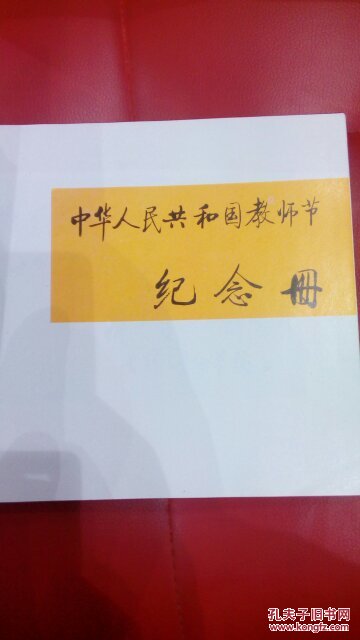 中华人民共和国教师节
纪念册
孔夫子旧书网
www.kongfz.com